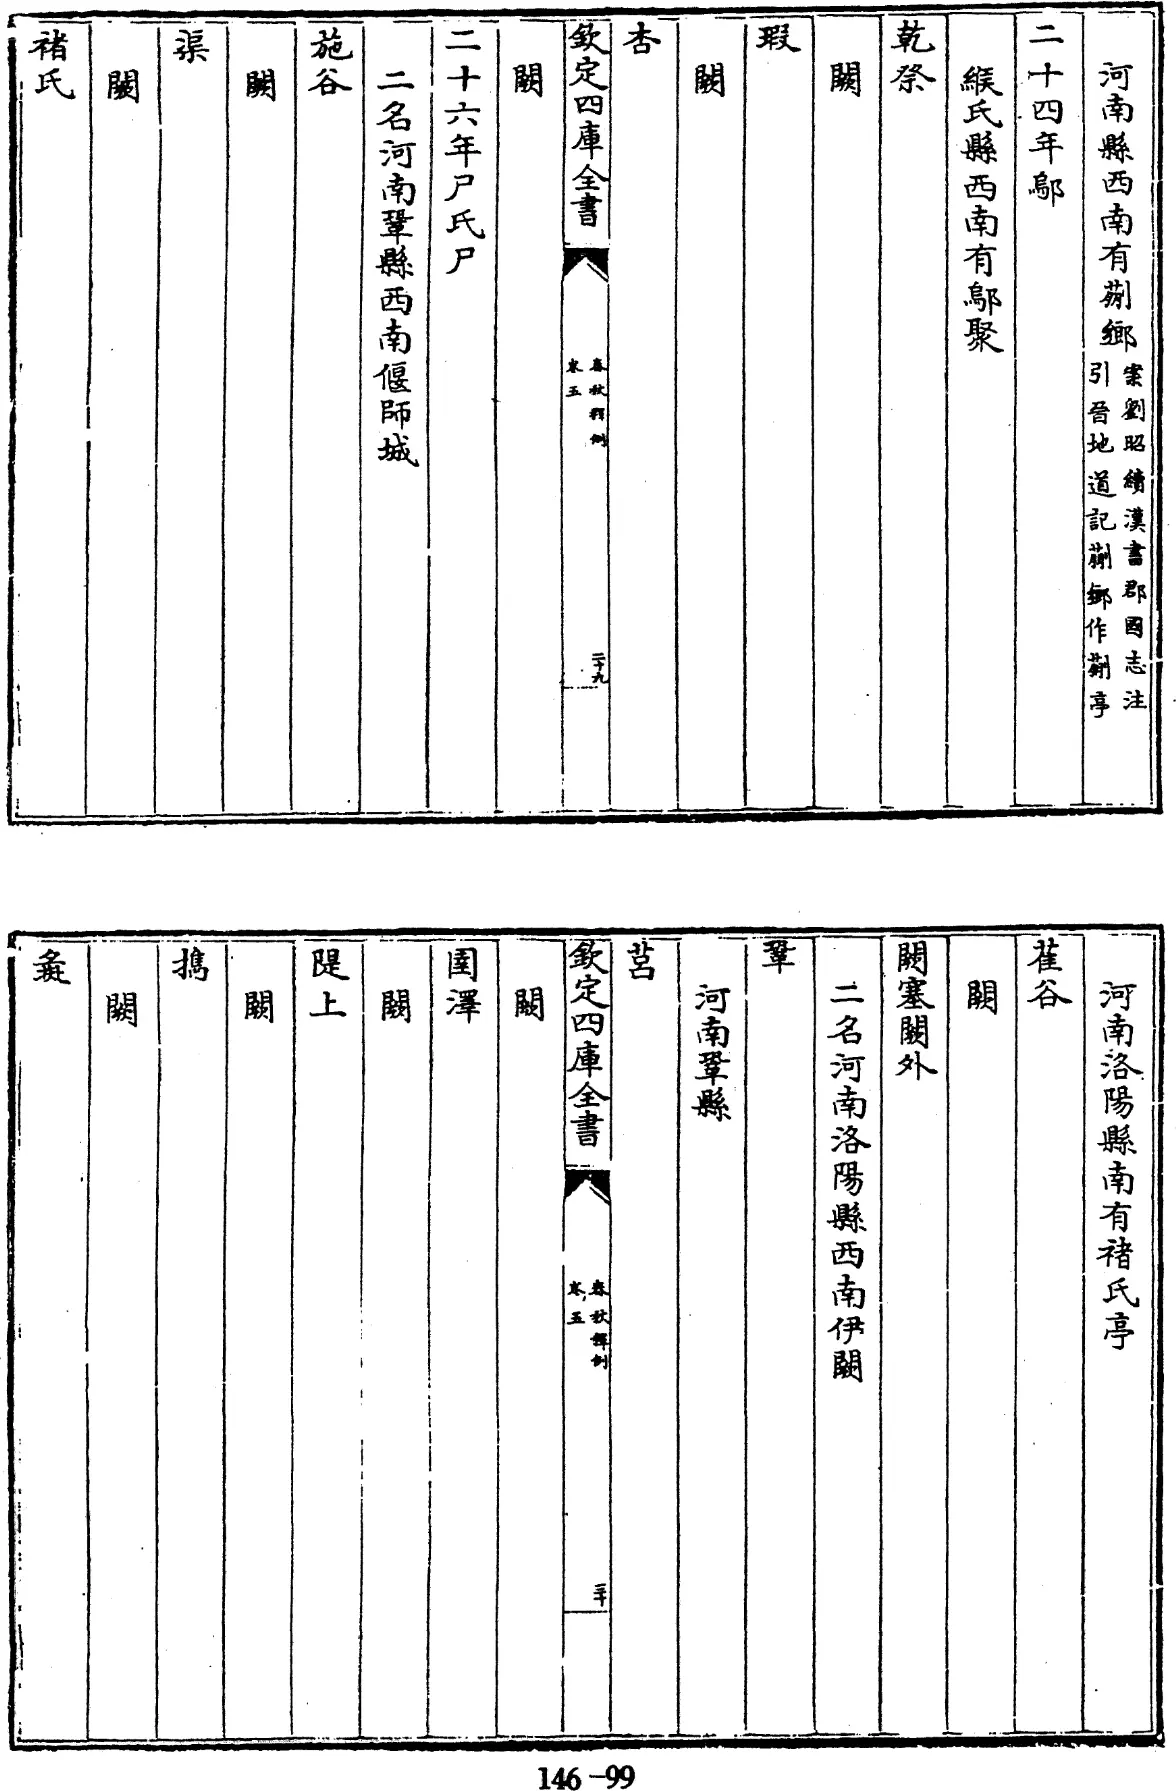 河南縣西南有蒯鄉
案劉昭續漢書郡國志注
引晉地道記蒯鄉作蒯亭
二十四年鄔
緱氏縣西南有鄔聚
乾祭
闕
瑕
闕
杏
欽定四庫全書
春秋釋例
卷五
二十九
闕
二十六年尸氏尸
二名河南鞏縣西南偃師城
施谷
闕
渠
闕
褚氏
河南洛陽縣南有褚氏亭
萑谷
闕
闕塞闕外
二名河南洛陽縣西南伊闕
鞏
河南鞏縣
莒
欽定四庫全書
春秋釋例
卷五
三十
闕
圉澤
闕
隄上
闕
擕
闕
彘
146-99